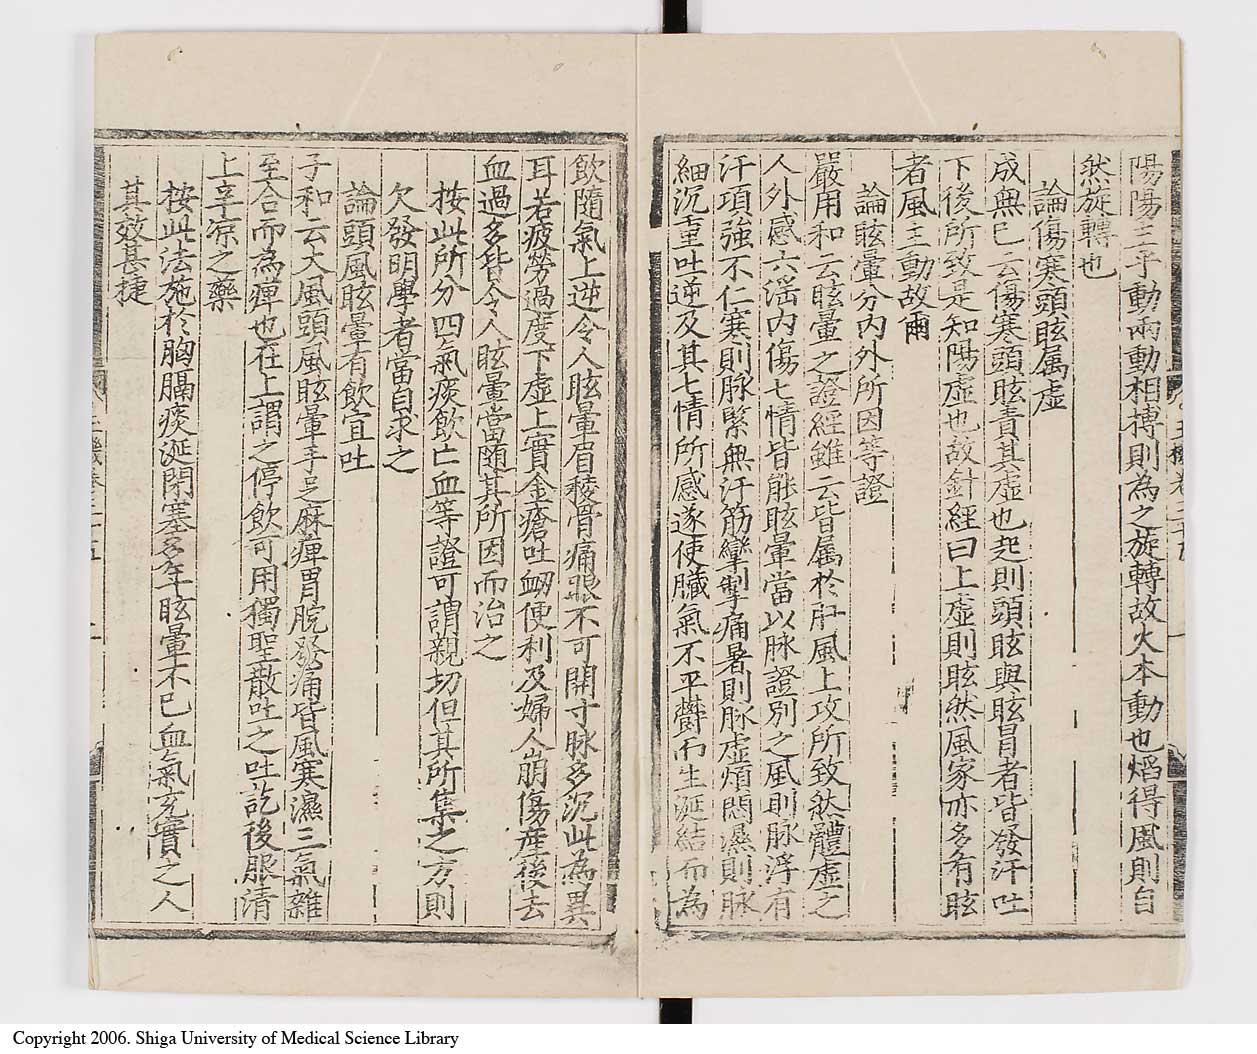 陽陽主乎動兩動相搏則為之旋轉故火本動也焰得風則自
然旋轉也
論傷寒頭眩属虛
成無已云傷寒頭眩責其虛也起則頭眩與眩冒者皆發汗吐
下後所致是知陽虛也故針經曰上虛則眩然風家亦多有眩
者風主動故爾
論眩暈分内外所因等證
嚴用和云眩暈之證經雖云皆属於肝風上攻所致然體虛之
人外感六淫内傷七情皆能眩暈當以脉證別之風則脉浮有
汗項強不仁寒則脉緊無汗筋攣掣痛暑則脉虛煩悶濕則脉
細沉重吐逆及其七情所感遂使臓氣不平欝而生涎結而為
飲隨氣上逆令人眩暈眉稜骨痛眼不可開寸脉多沉此為異
耳若疲勞過度下虛上實金瘡吐衂便利及婦人崩傷産後去
血過多皆令人眩暈當随其所因而治之
按此所分四氣痰飲亡血等證可謂親切但其所集之方則
欠發明學者當自求之
論頭風眩暈有飲宜吐
子和云大風頭風眩暈手足麻痺胃脘發痛皆風寒濕三氣雜
至合而為痺也在上謂之停飲可用獨聖散吐之吐訖後服清
上辛凉之藥
按此法施於胸膈痰涎閉塞多年眩暈不已血氣充實之人
其效甚捷
Copyright 2006. Shiga University of Medical Science Library